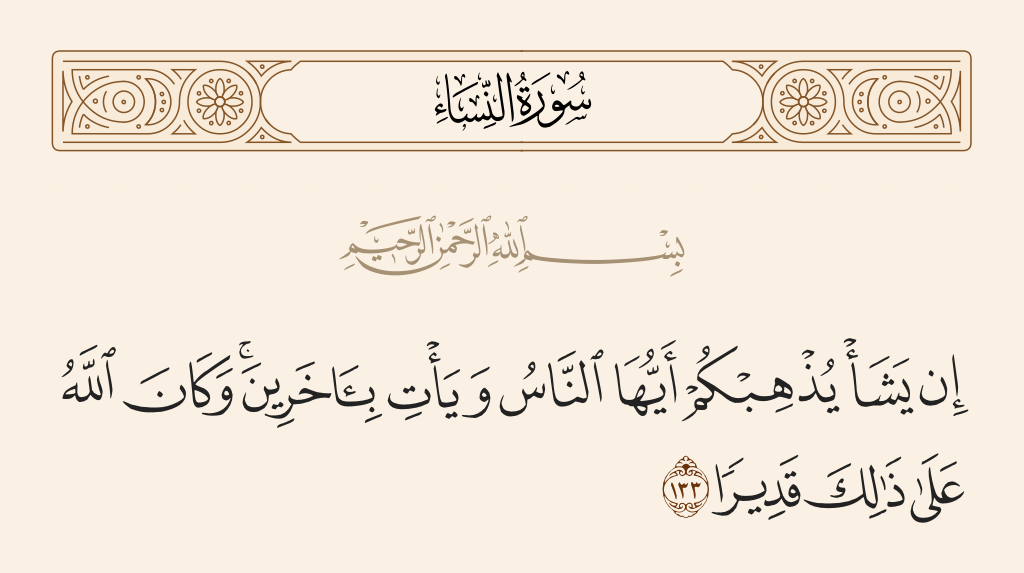 سُورَةُ النِّسَاءِ
بِسْمِ ٱللَّهِ ٱلرَّحْمَٰنِ ٱلرَّحِيمِ
إِن يَشَأْ يُذْهِبْكُمْ أَيُّهَا ٱلنَّاسُ وَيَأْتِ بِـَٔاخَرِينَ ۚ وَكَانَ ٱللَّهُ
عَلَىٰ ذَٰلِكَ قَدِيرًا ١٣٣